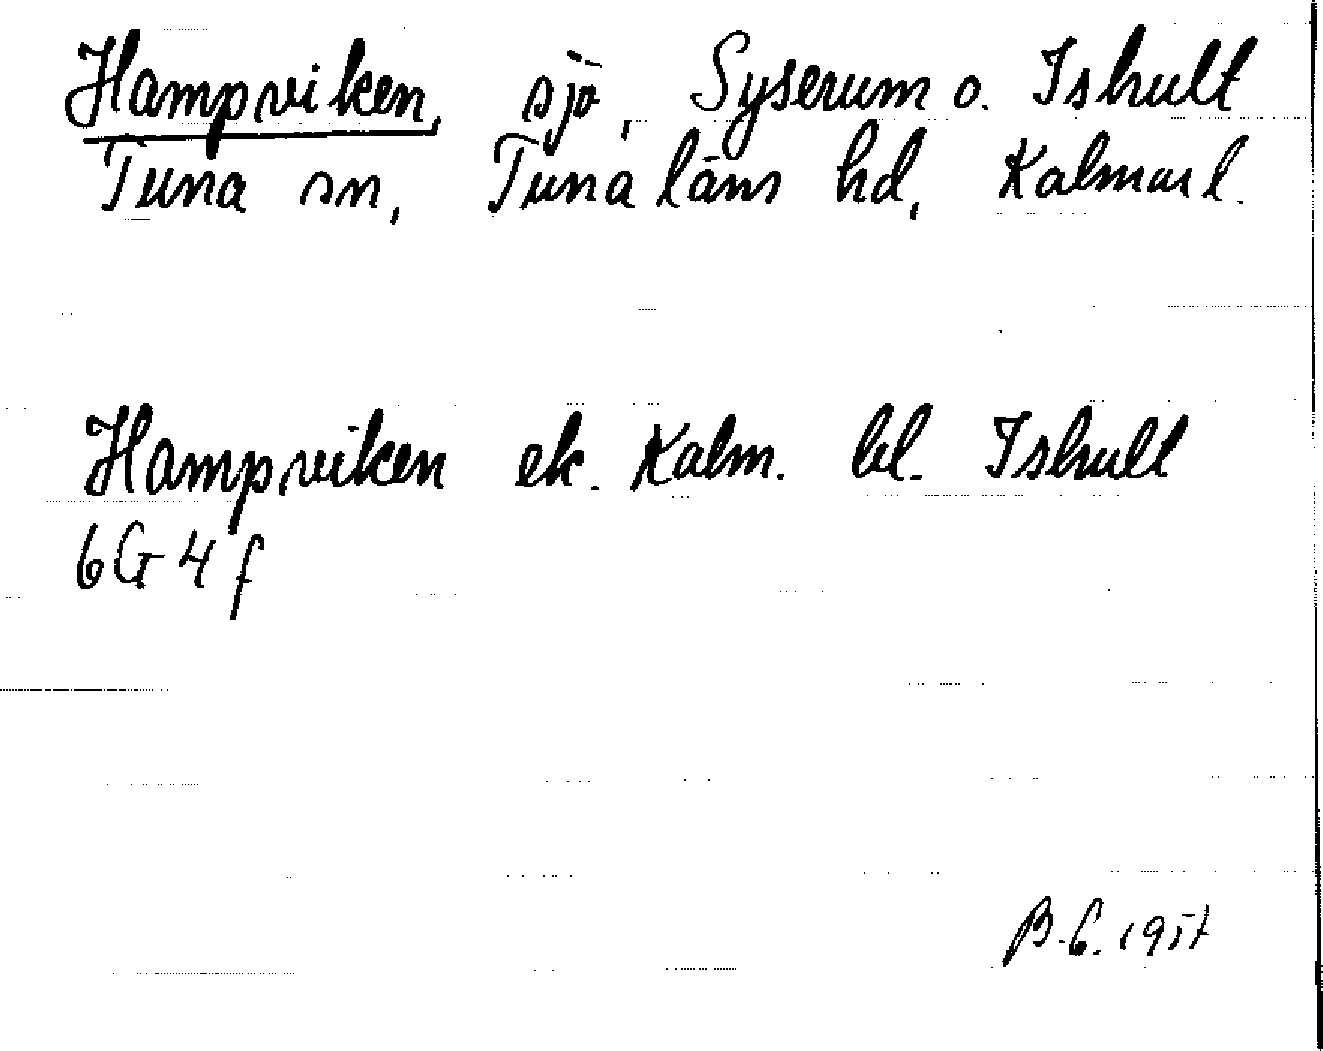 Hampviken, sjö, Syserum o. Ishult
Tuna sn, Tunaläns hd, Kalmar l.
Hampviken ek. Kalm. bl. Ishult
6G4f
B.E. 1957